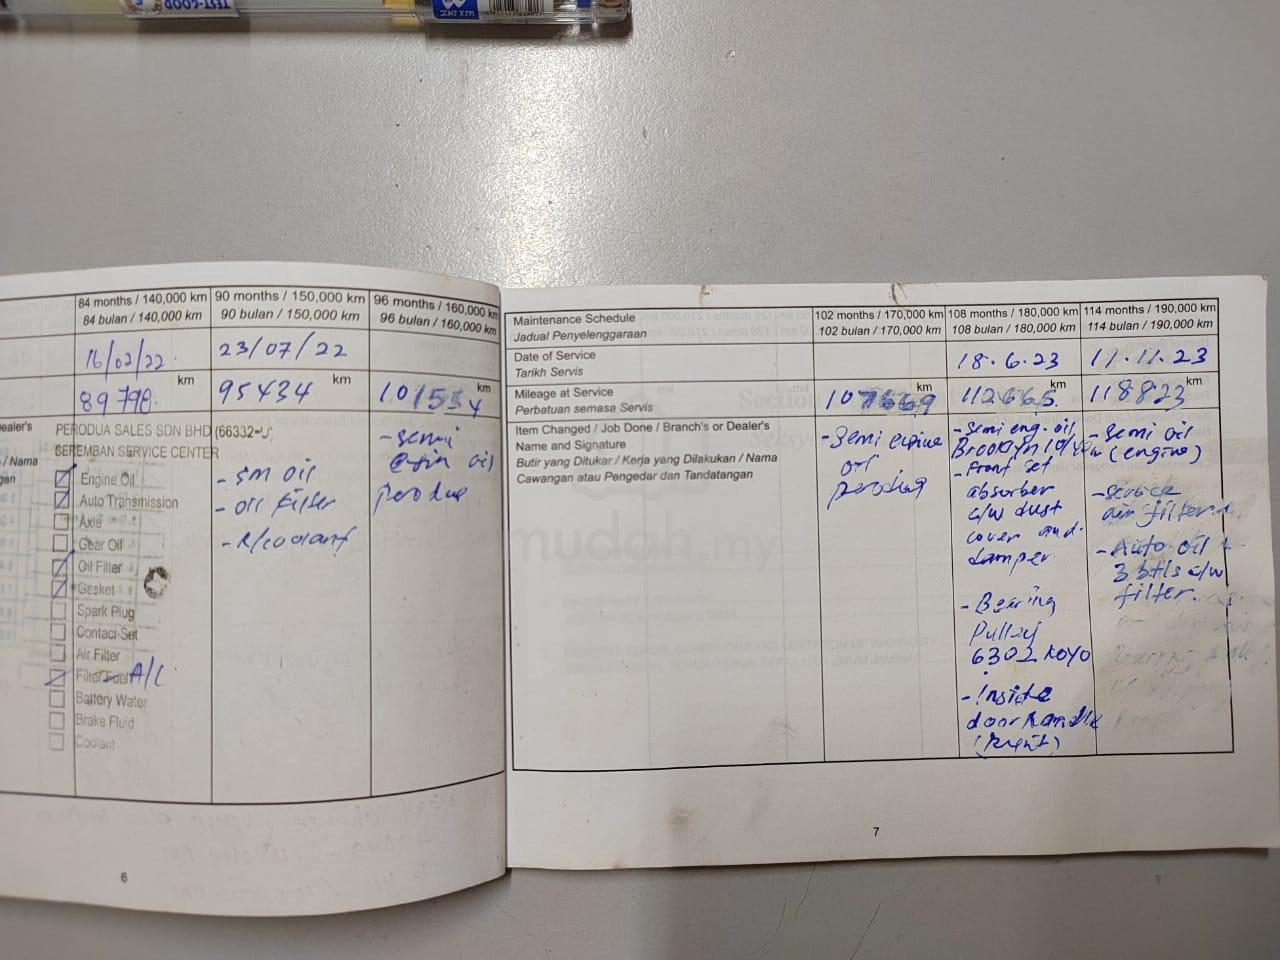 TEST-GOOD
ZHI XIN
84 months / 140,000 km
84 bulan / 140,000 km
90 months / 150,000 km
90 bulan / 150,000 km
96 months / 160,000 km
96 bulan / 160,000 km
16/02/22.
23/07/22
89798. km
95434 km
101554 km
ealer's
/ Nama
gan
PERODUA SALES SDN BHD (66332-
SEREMBAN SERVICE CENTER
Engine Oil
Auto Transmission
Axle
Gear Oil
Oil Filter
Gasket
Spark Plug
Contact Set
Air Filter
Filter Fuel A/C
Battery Water
Brake Fluid
Coolant
- SM oil
- oil Filter
- R/coolant
- semi
engin oil
perodua
6
Maintenance Schedule
Jadual Penyelenggaraan
102 months / 170,000 km
102 bulan / 170,000 km
108 months / 180,000 km
108 bulan / 180,000 km
114 months / 190,000 km
114 bulan / 190,000 km
Date of Service
Tarikh Servis
18.6.23
11.11.23
Mileage at Service
Perbatuan semasa Servis
107669 km
112665. km
118823 km
Item Changed / Job Done / Branch's or Dealer's
Name and Signature
Butir yang Ditukar / Kerja yang Dilakukan / Nama
Cawangan atau Pengedar dan Tandatangan
- Semi engine
oil
perodua
- Semi eng. oil
Brooklyn 10/40
- Front set
absorber
c/w dust
cover and
damper
- Bearing
Pulley
6302 KOYO
- Inside
door handle
(Right)
- Semi oil
(engine)
- Service
air filter
- Auto oil
3 btls c/w
filter.
mudah.my
7